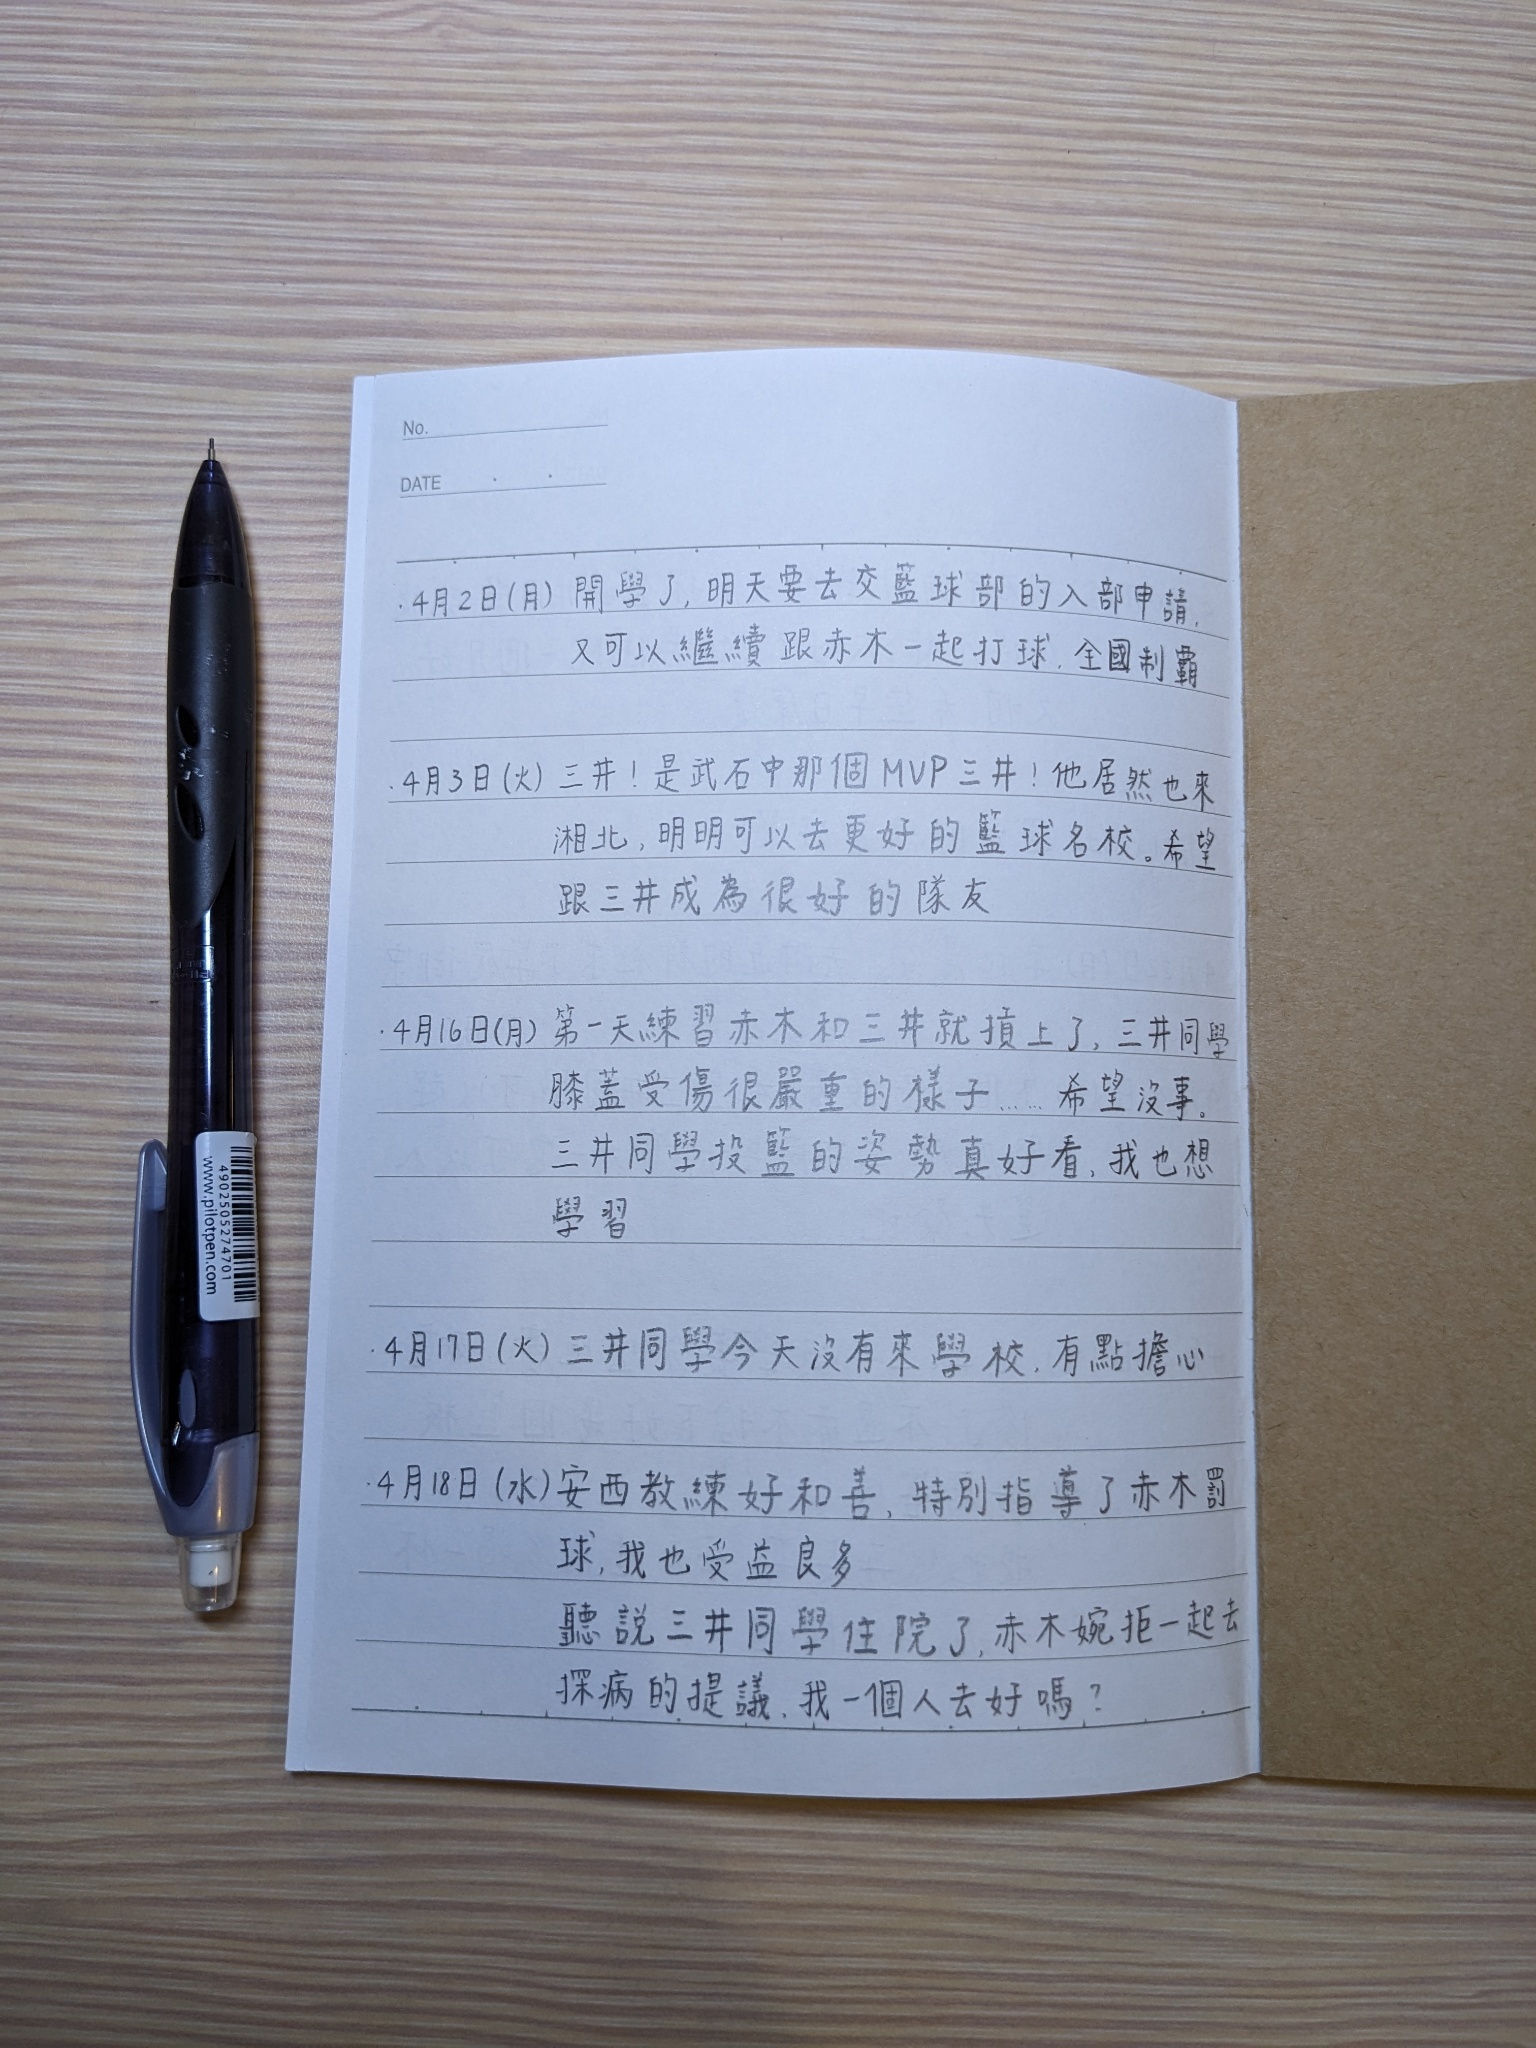 No.
DATE
·4月2日(月) 開學了,明天要去交籃球部的入部申請,
又可以繼續跟赤木一起打球,全國制霸
·4月3日(火) 三井!是武石中那個MVP三井!他居然也來
湘北,明明可以去更好的籃球名校。希望
跟三井成為很好的隊友
·4月16日(月) 第一天練習赤木和三井就摃上了,三井同學
膝蓋受傷很嚴重的樣子……希望沒事。
三井同學投籃的姿勢真好看,我也想
學習
·4月17日(火) 三井同學今天沒有來學校,有點擔心
·4月18日(水) 安西教練好和善,特別指導了赤木罰
球,我也受益良多
聽說三井同學住院了,赤木婉拒一起去
探病的提議,我一個人去好嗎?
4902505274701
www.pilotpen.com